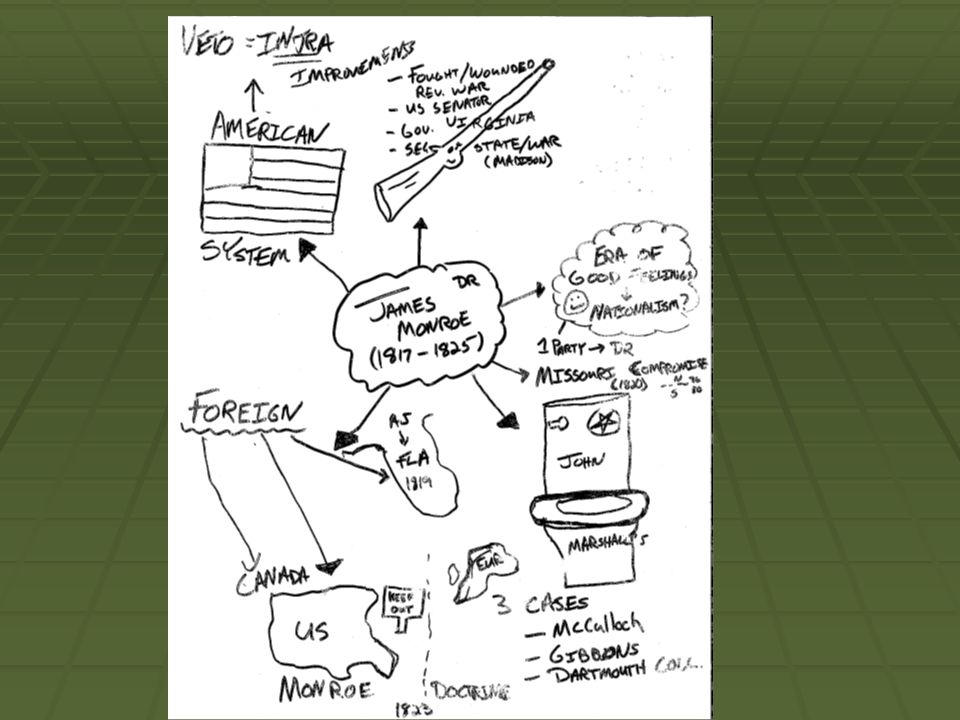 VETO = INTRA
IMPROVEMENTS
AMERICAN
SYSTEM
- FOUGHT/WOUNDED
REV. WAR
- US SENATOR
- GOV. VIRGINIA
- SECS STATE/WAR
(MADISON)
DR
JAMES
MONROE
(1817-1825)
ERA OF
GOOD FEELINGS
NATIONALISM?
1 PARTY → DR
MISSOURI COMPROMISE
(1820)
N
S
36
30
FOREIGN
AJ
FLA
1819
CANADA
US
KEEP
OUT
EUR
MONROE DOCTRINE
1823
JOHN
MARSHALL'S
3 CASES
- McCulloch
- GIBBONS
- DARTMOUTH COLL.